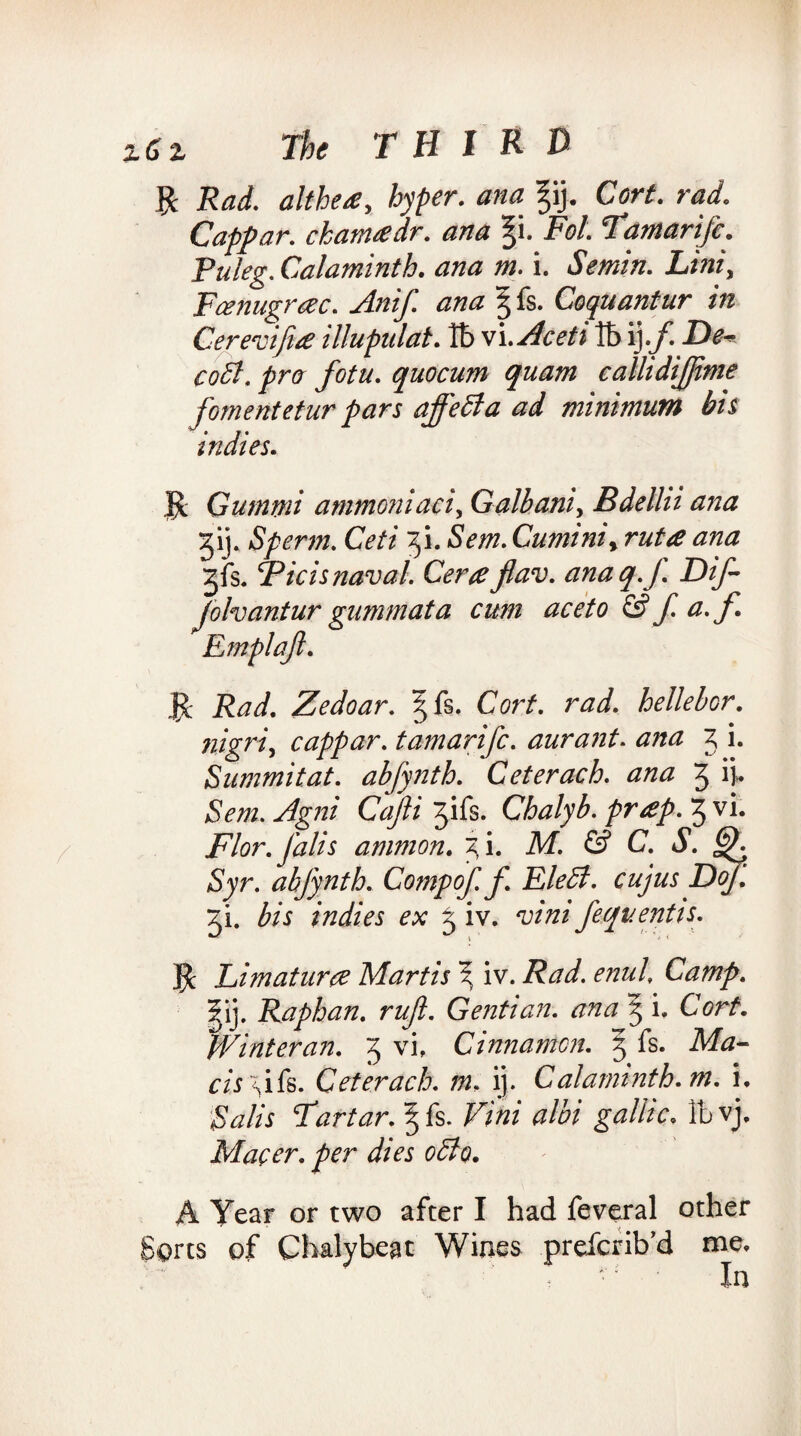 262 The THIRD
℞ Rad. altheæ, hyper. ana ℥ij. Cort. rad.
Cappar. chamædr. ana ℥i. Fol. Tamarisc.
Puleg. Calaminth. ana m. i. Semin. Lini,
Fœnugræc. Anis. ana ℥ſs. Coquantur in
Cerevisiæ illupulat. ℔ vi. Aceti ℔ ij.ſ. De-
coct. pro fotu. quocum quam callidiſſime
fomentetur pars affecta ad minimum bis
indies.
℞ Gummi ammoniaci, Galbani, Bdellii ana
ʒij. Sperm. Ceti ʒi. Sem. Cumini, rutæ ana
ʒſs. Picis naval. Ceræ flav. ana q.ſ. Diſ-
ſolvantur gummata cum aceto & ſ. a. ſ.
Emplaſt.
℞ Rad. Zedoar. ℥ſs. Cort. rad. hellebor.
nigri, cappar. tamariſc. aurant. ana ʒ i.
Summitat. abſynth. Ceterach. ana ʒ ij.
Sem. Agni Caſti ʒiſs. Chalyb. præp. ʒ vi.
Flor. ſalis ammon. ʒi. M. & C. S. Q.
Syr. abſynth. Compoſ. ſ. Elect. cujus Doſ.
ʒi. bis indies ex ʒ iv. vini ſequentis.
℞ Limaturæ Martis ℥ iv. Rad. enul. Camp.
℥ij. Raphan. ruſt. Gentian. ana ℥ i. Cort.
Winteran. ʒ vi, Cinnamon. ℥ ſs. Ma-
cis ʒiſs. Ceterach. m. ij. Calaminth. m. i.
Salis Tartar. ℥ſs. Vini albi gallic. ℔ vj.
Macer. per dies octo.
A Year or two after I had ſeveral other
Sorts of Chalybeat Wines preſcrib'd me.
In